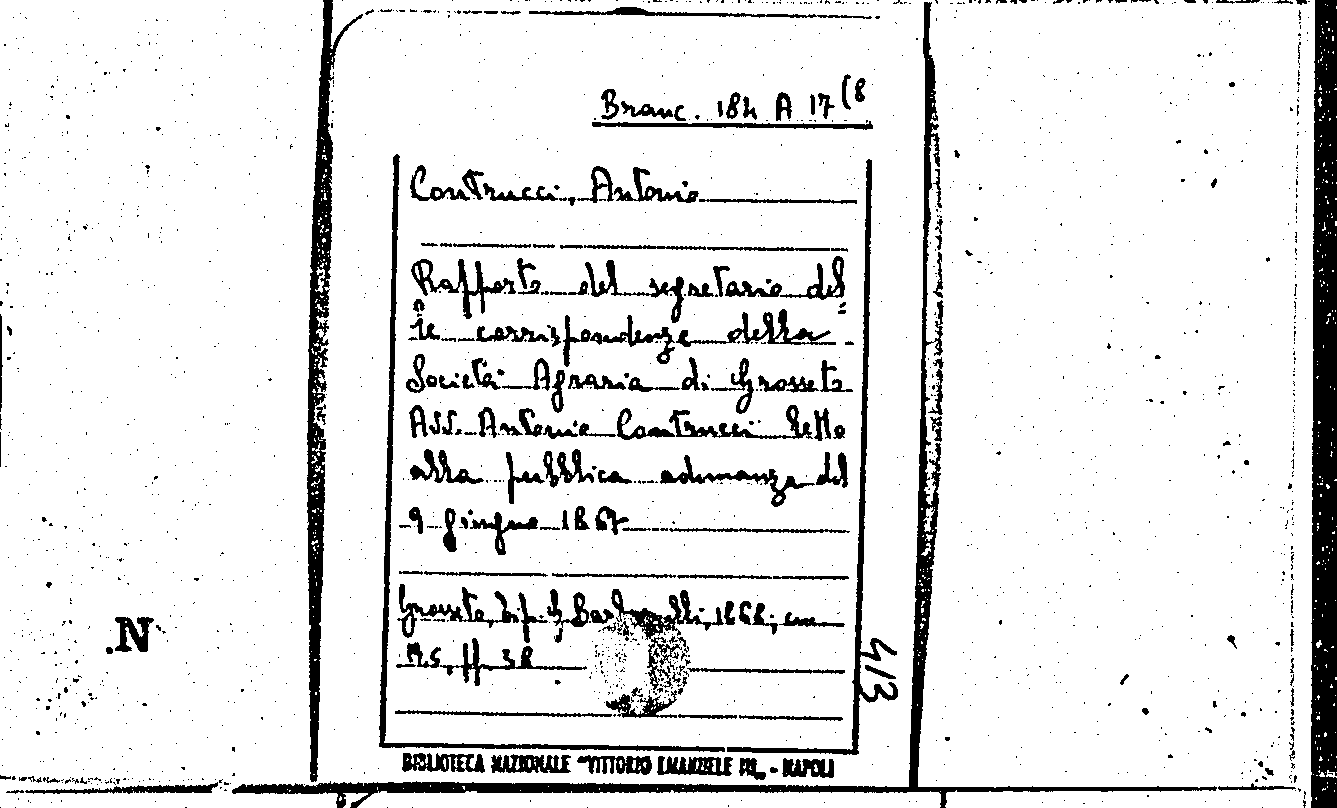 Branc. 184 A 17 (8
Contrucci, Antonio
Rapporto del segretario del=
le corrispondenze della
Società Agraria di Grosseto
Avv. Antonio Contrucci letto
alla pubblica adunanza del
9 giugno 1867
Grosseto, tip. G. Barbarulli, 1868; cm
pp. 38
4/3
.N
BIBLIOTECA NAZIONALE "VITTORIO EMANUELE III„ - NAPOLI